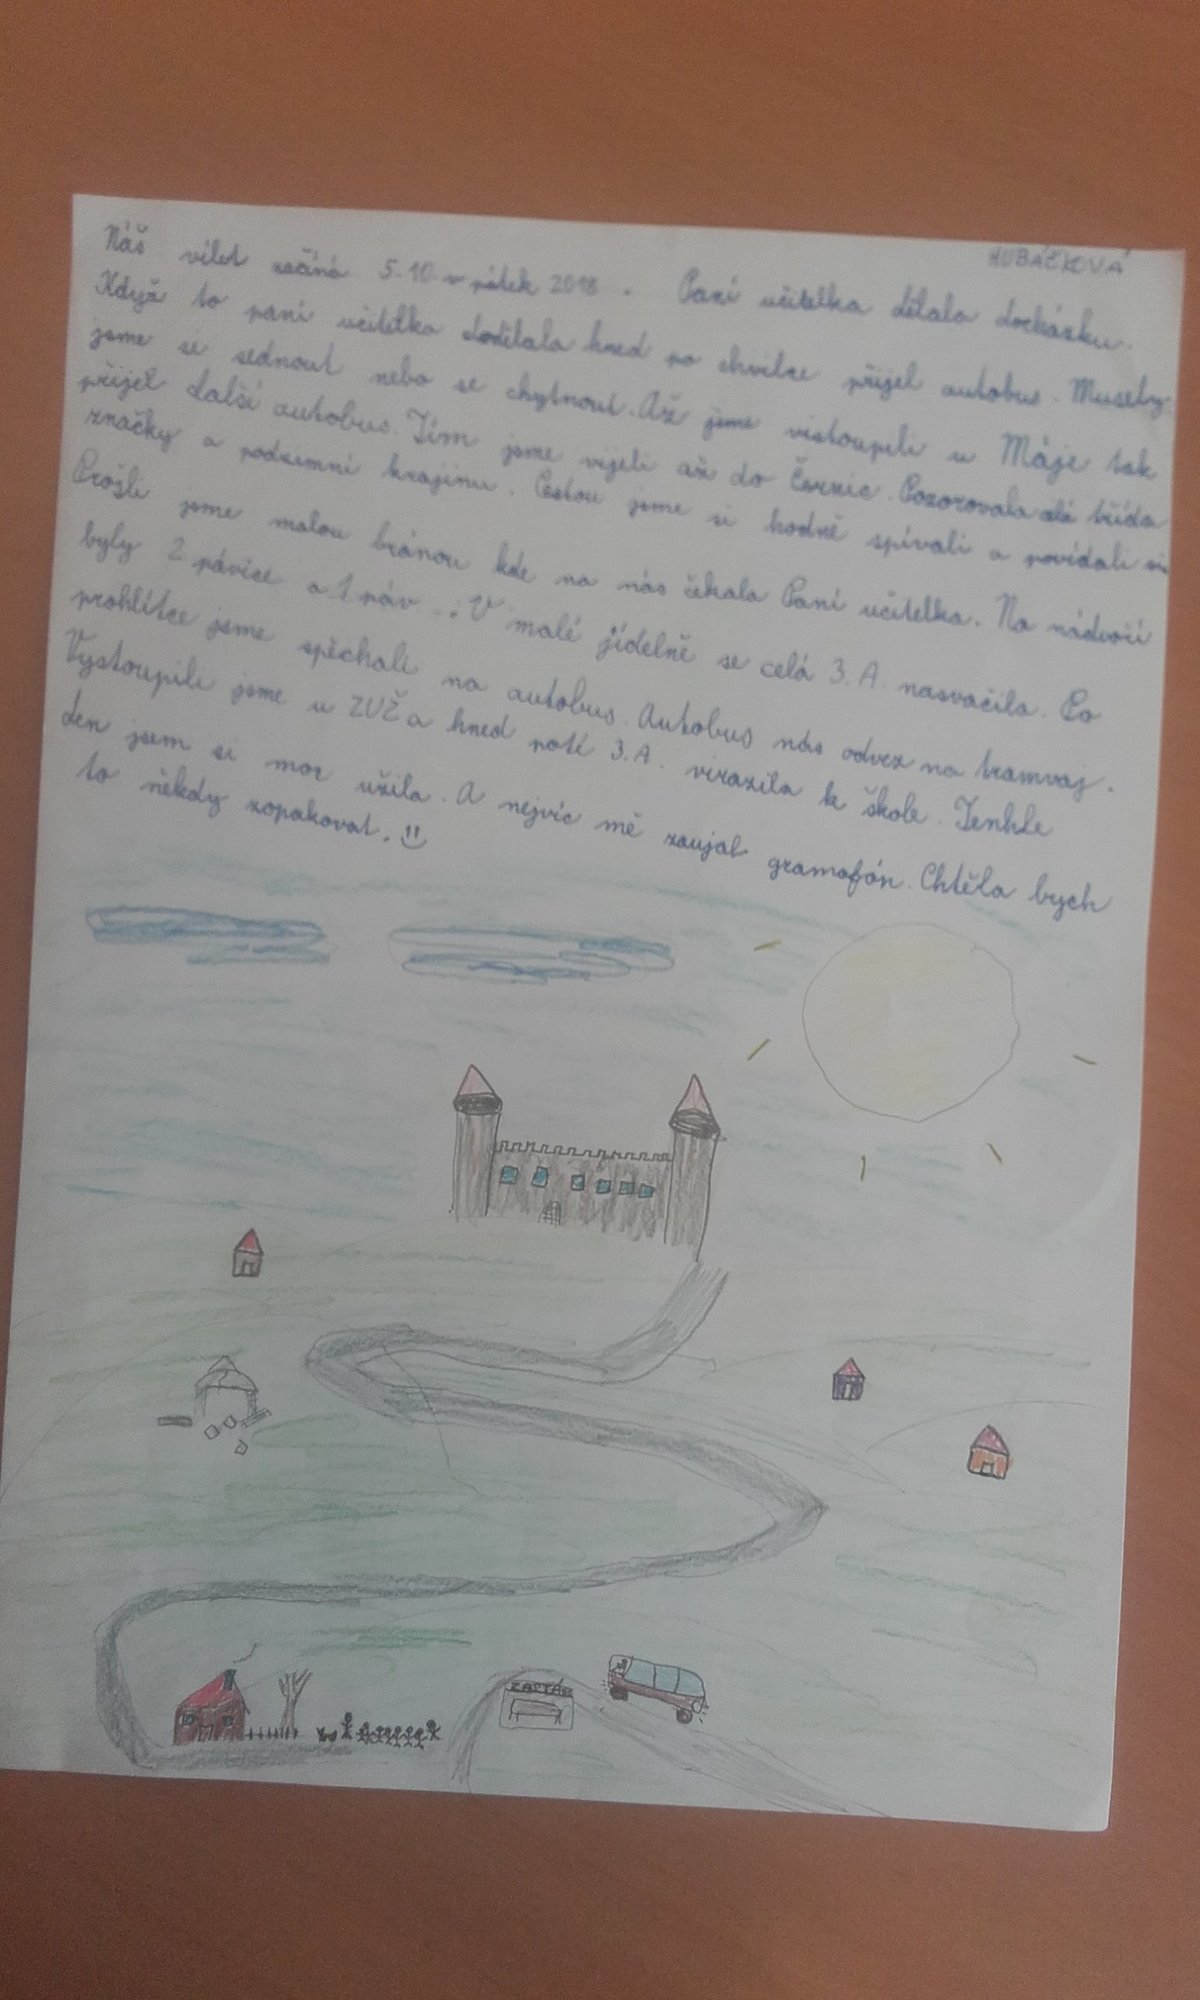 HUBÁČKOVÁ
Náš vílet začíná 5.10 v pátek 2018. Paní učitelka dělala docházku.
Když to paní učitelka dodělala hned po chvilce přijel autobus. Musely
jsme si sednout nebo se chytnout. Až jsme vistoupili u Máje tak
přijel další autobus. Tím jsme vijeli až do Černic. Pozorovala třída
značky a podzimní krajinu. Cestou jsme si hodně spívali a povídali si
Prošli jsme malou bránou kde na nás čekala Paní učitelka. Na nádvoří
byly 2 pávice a 1 páv. V malé jídelně se celá 3.A nasvačila. Po
prohlítce jsme spěchali na autobus. Autobus nás odvez na tramvaj.
Vystoupili jsme u ZUŽ a hned poté 3.A. virazila k škole. Tenhle
den jsem si moc užila. A nejvíc mě zaujal gramofón. Chtěla bych
to někdy zopakovat.